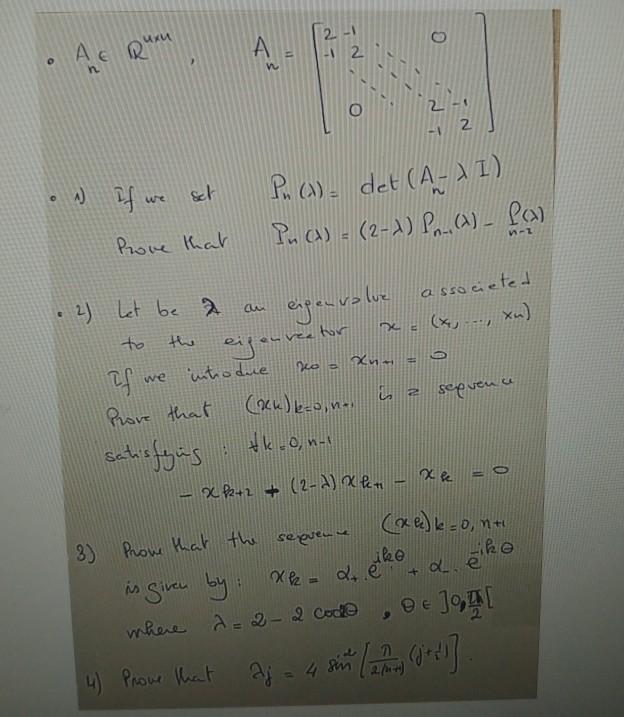 • A_n ∈ ℝ^{n×n}, A_n = [2 -1 0
-1 2
0 2 -1
-1 2]
• 1) If we set P_n(λ) = det(A_n - λI)
Prove that P_n(λ) = (2-λ) P_{n-1}(λ) - P_{n-2}(λ)
• 2) Let be λ an eigenvalue associeted
to the eigenvector x = (x_1, ..., x_n)
If we introduce x_0 = x_{n+1} = 0
Prove that (x_k)_{k=0,n+1} is a sequence
satisfying : ∀k=0,n-1
- x_{k+2} + (2-λ) x_{k+1} - x_k = 0
3) Prove that the sequence (x_k)_{k=0,n+1}
is given by : x_k = α_+ . e^{ikθ} + α_- . e^{-ikθ}
where λ = 2 - 2 cosθ , θ ∈ ]0, [
4) Prove that λ_j = 4 sin² [π/2(n+1) (j+1)].